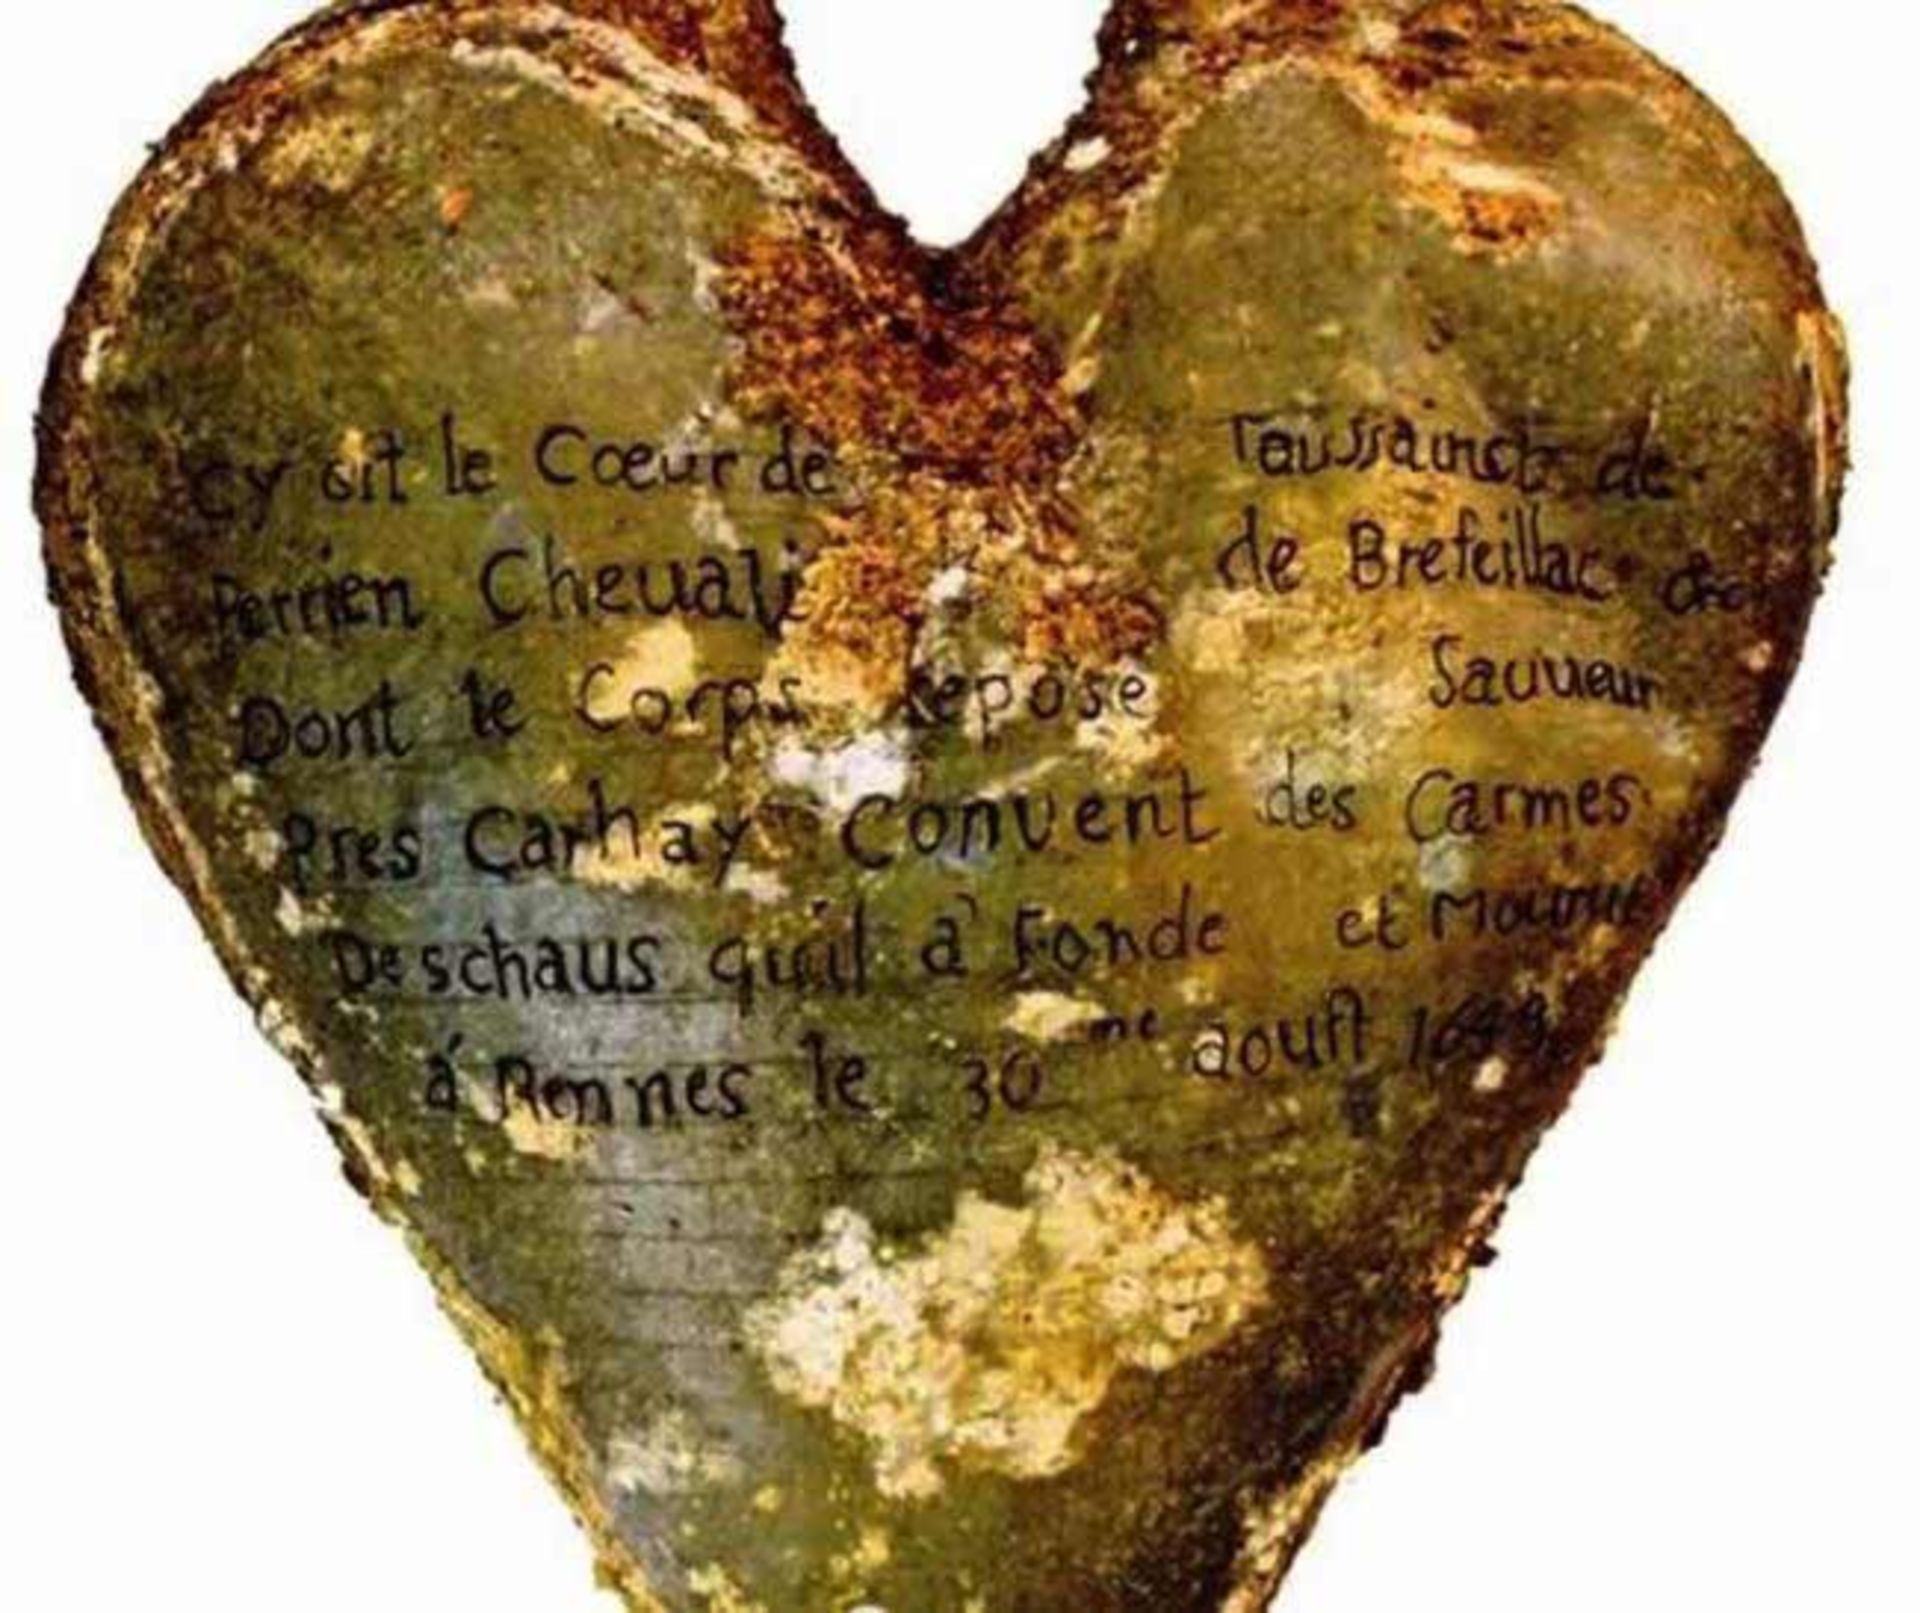 Cy Git le Cœur de Toussainct de
Perrien Cheuali de Brefeillac &c
Dont le Corps repose Sauueur
Pres Carhay Convent des Carmes
Deschaus quil à Fonde et Mourut
á Rennes le 30 me aoust